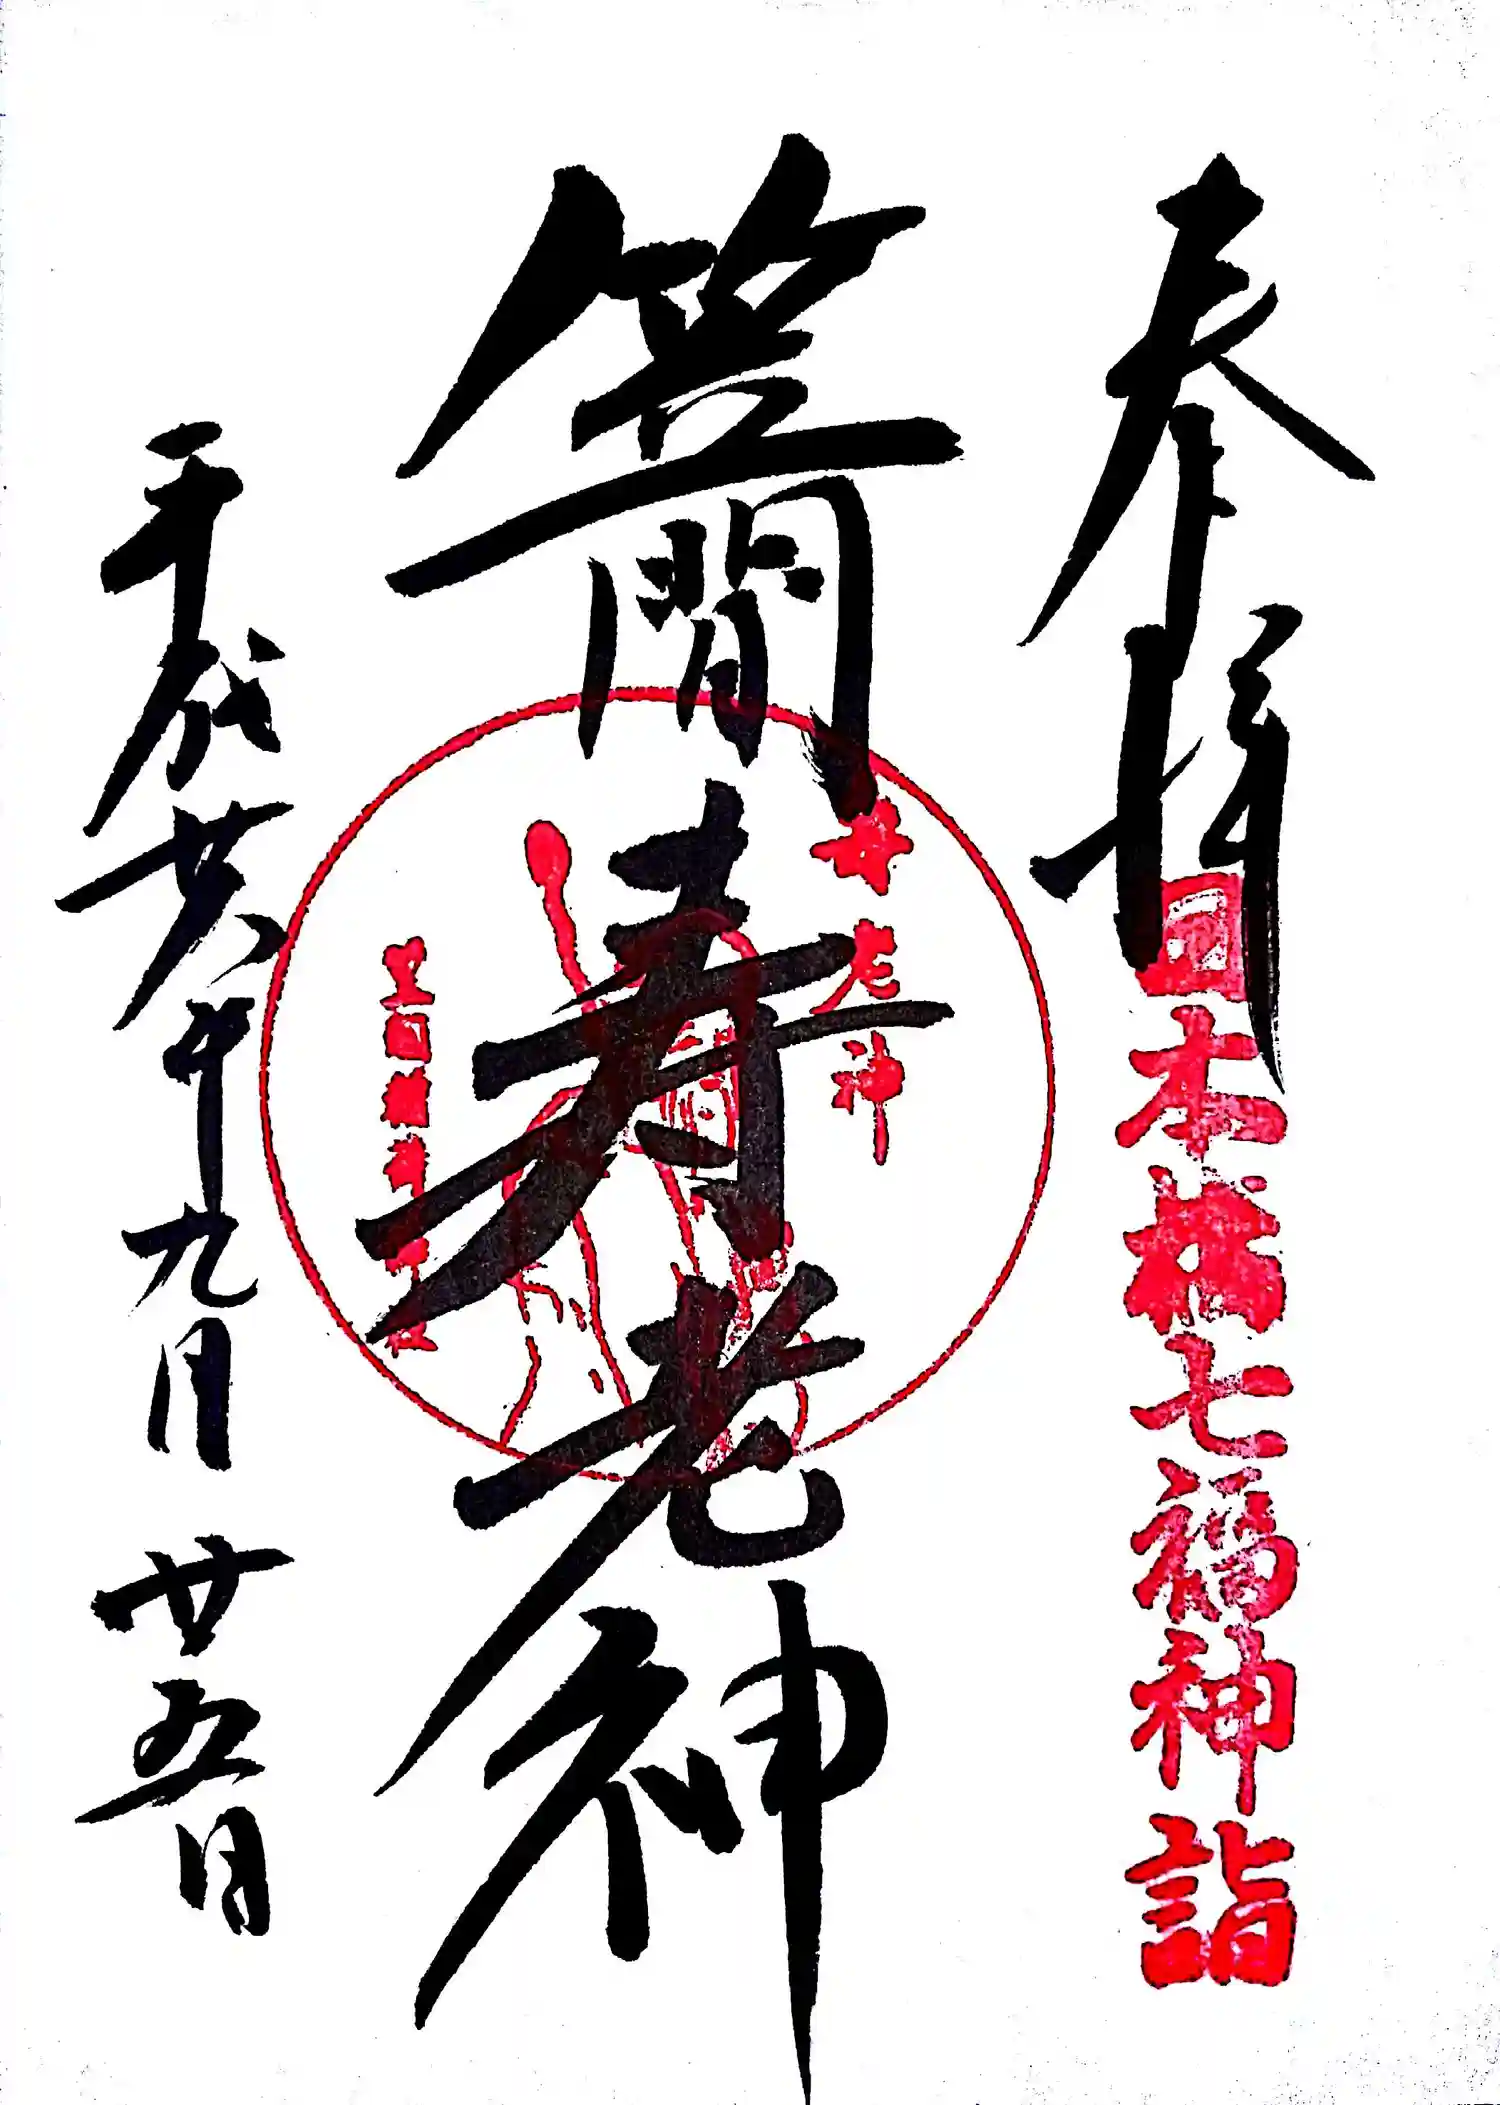 奉拝
日本橋七福神詣
笠間寿老神
寿老神
平成廿六年九月廿五日